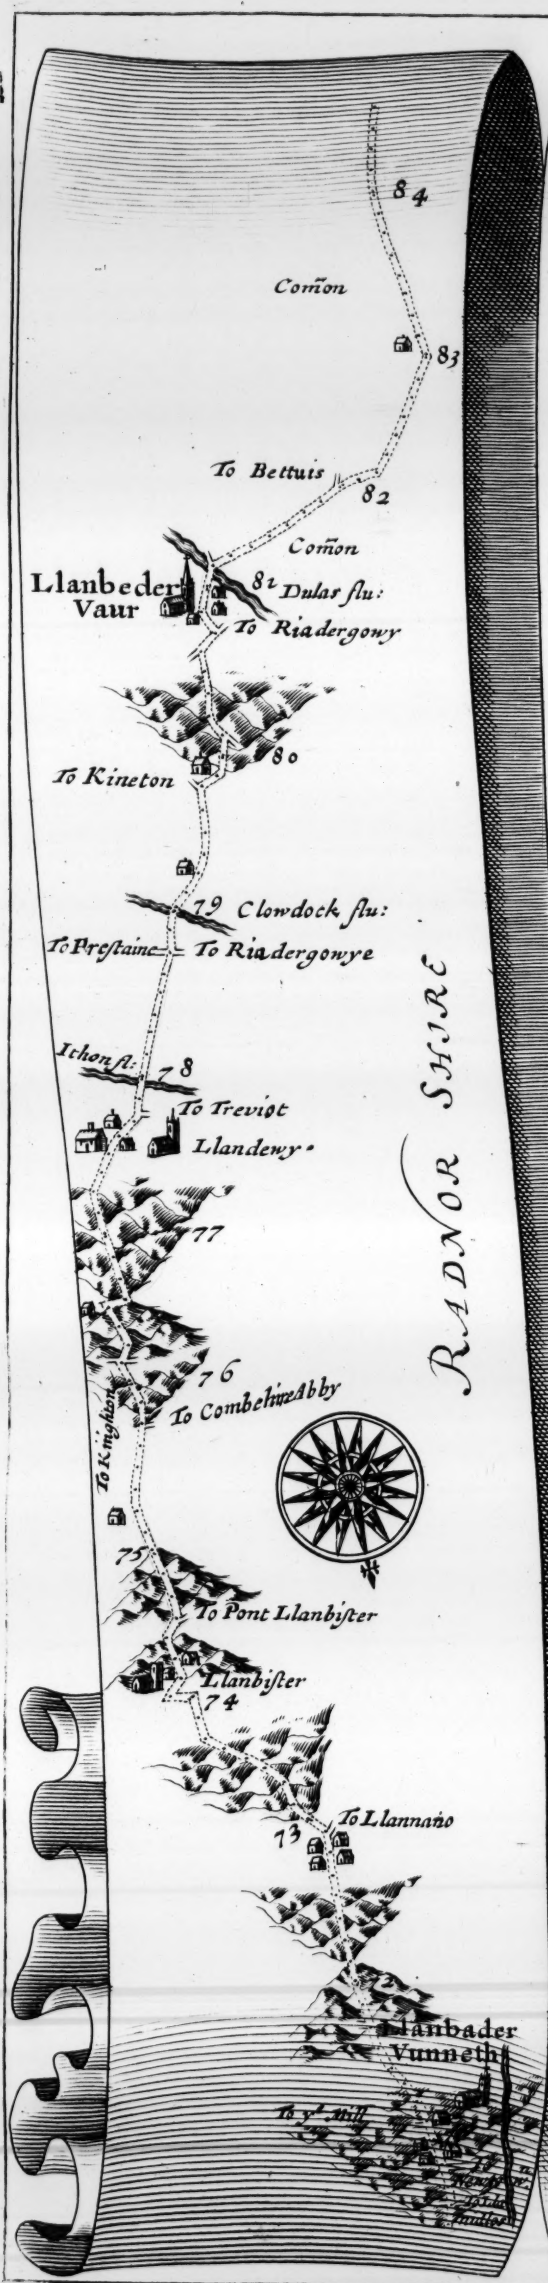 84
Com̃on
83
To Bettuis
82
Com̃on
Llanbeder
Vaur
81 Dulas flu:
To Riadergowy
80
To Kineton
79 Clowdock flu:
To Prestaine
To Riadergowye
Ithon fl:
78
To Treviot
Llandewy
77
76
To Combehire Abby
To Knighton
RADNOR SHIRE
75
To Pont Llanbister
Llanbister
74
73
To Llannano
Llanbader
Vunneth
To yͤ Mill